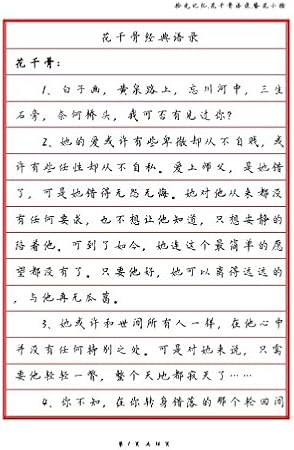 拾光记忆,花千骨语录繁花小楷
花千骨经典语录
花千骨:
1、白子画,黄泉路上,忘川河中,三生
石旁,奈何桥头,我可否有见过你?
2、她的爱或许有些卑微却从不自贱,或
许有些任性却从不自私。爱上师父,是她错
了,可是她错得无怨无悔。她对他从来都没
有任何要求,也不想让他知道,只想安静的
陪着他。可到了如今,她连这个最简单的愿
望都没有了。只要他好,她可以离得远远的
,与他再无瓜葛。
3、她或许和世间所有人一样,在他心中
并没有任何特别之处。可是对她来说,只需
要他轻轻一瞥,整个天地都寂灭了……
4、你不知,在你转身错落的那个轮回间